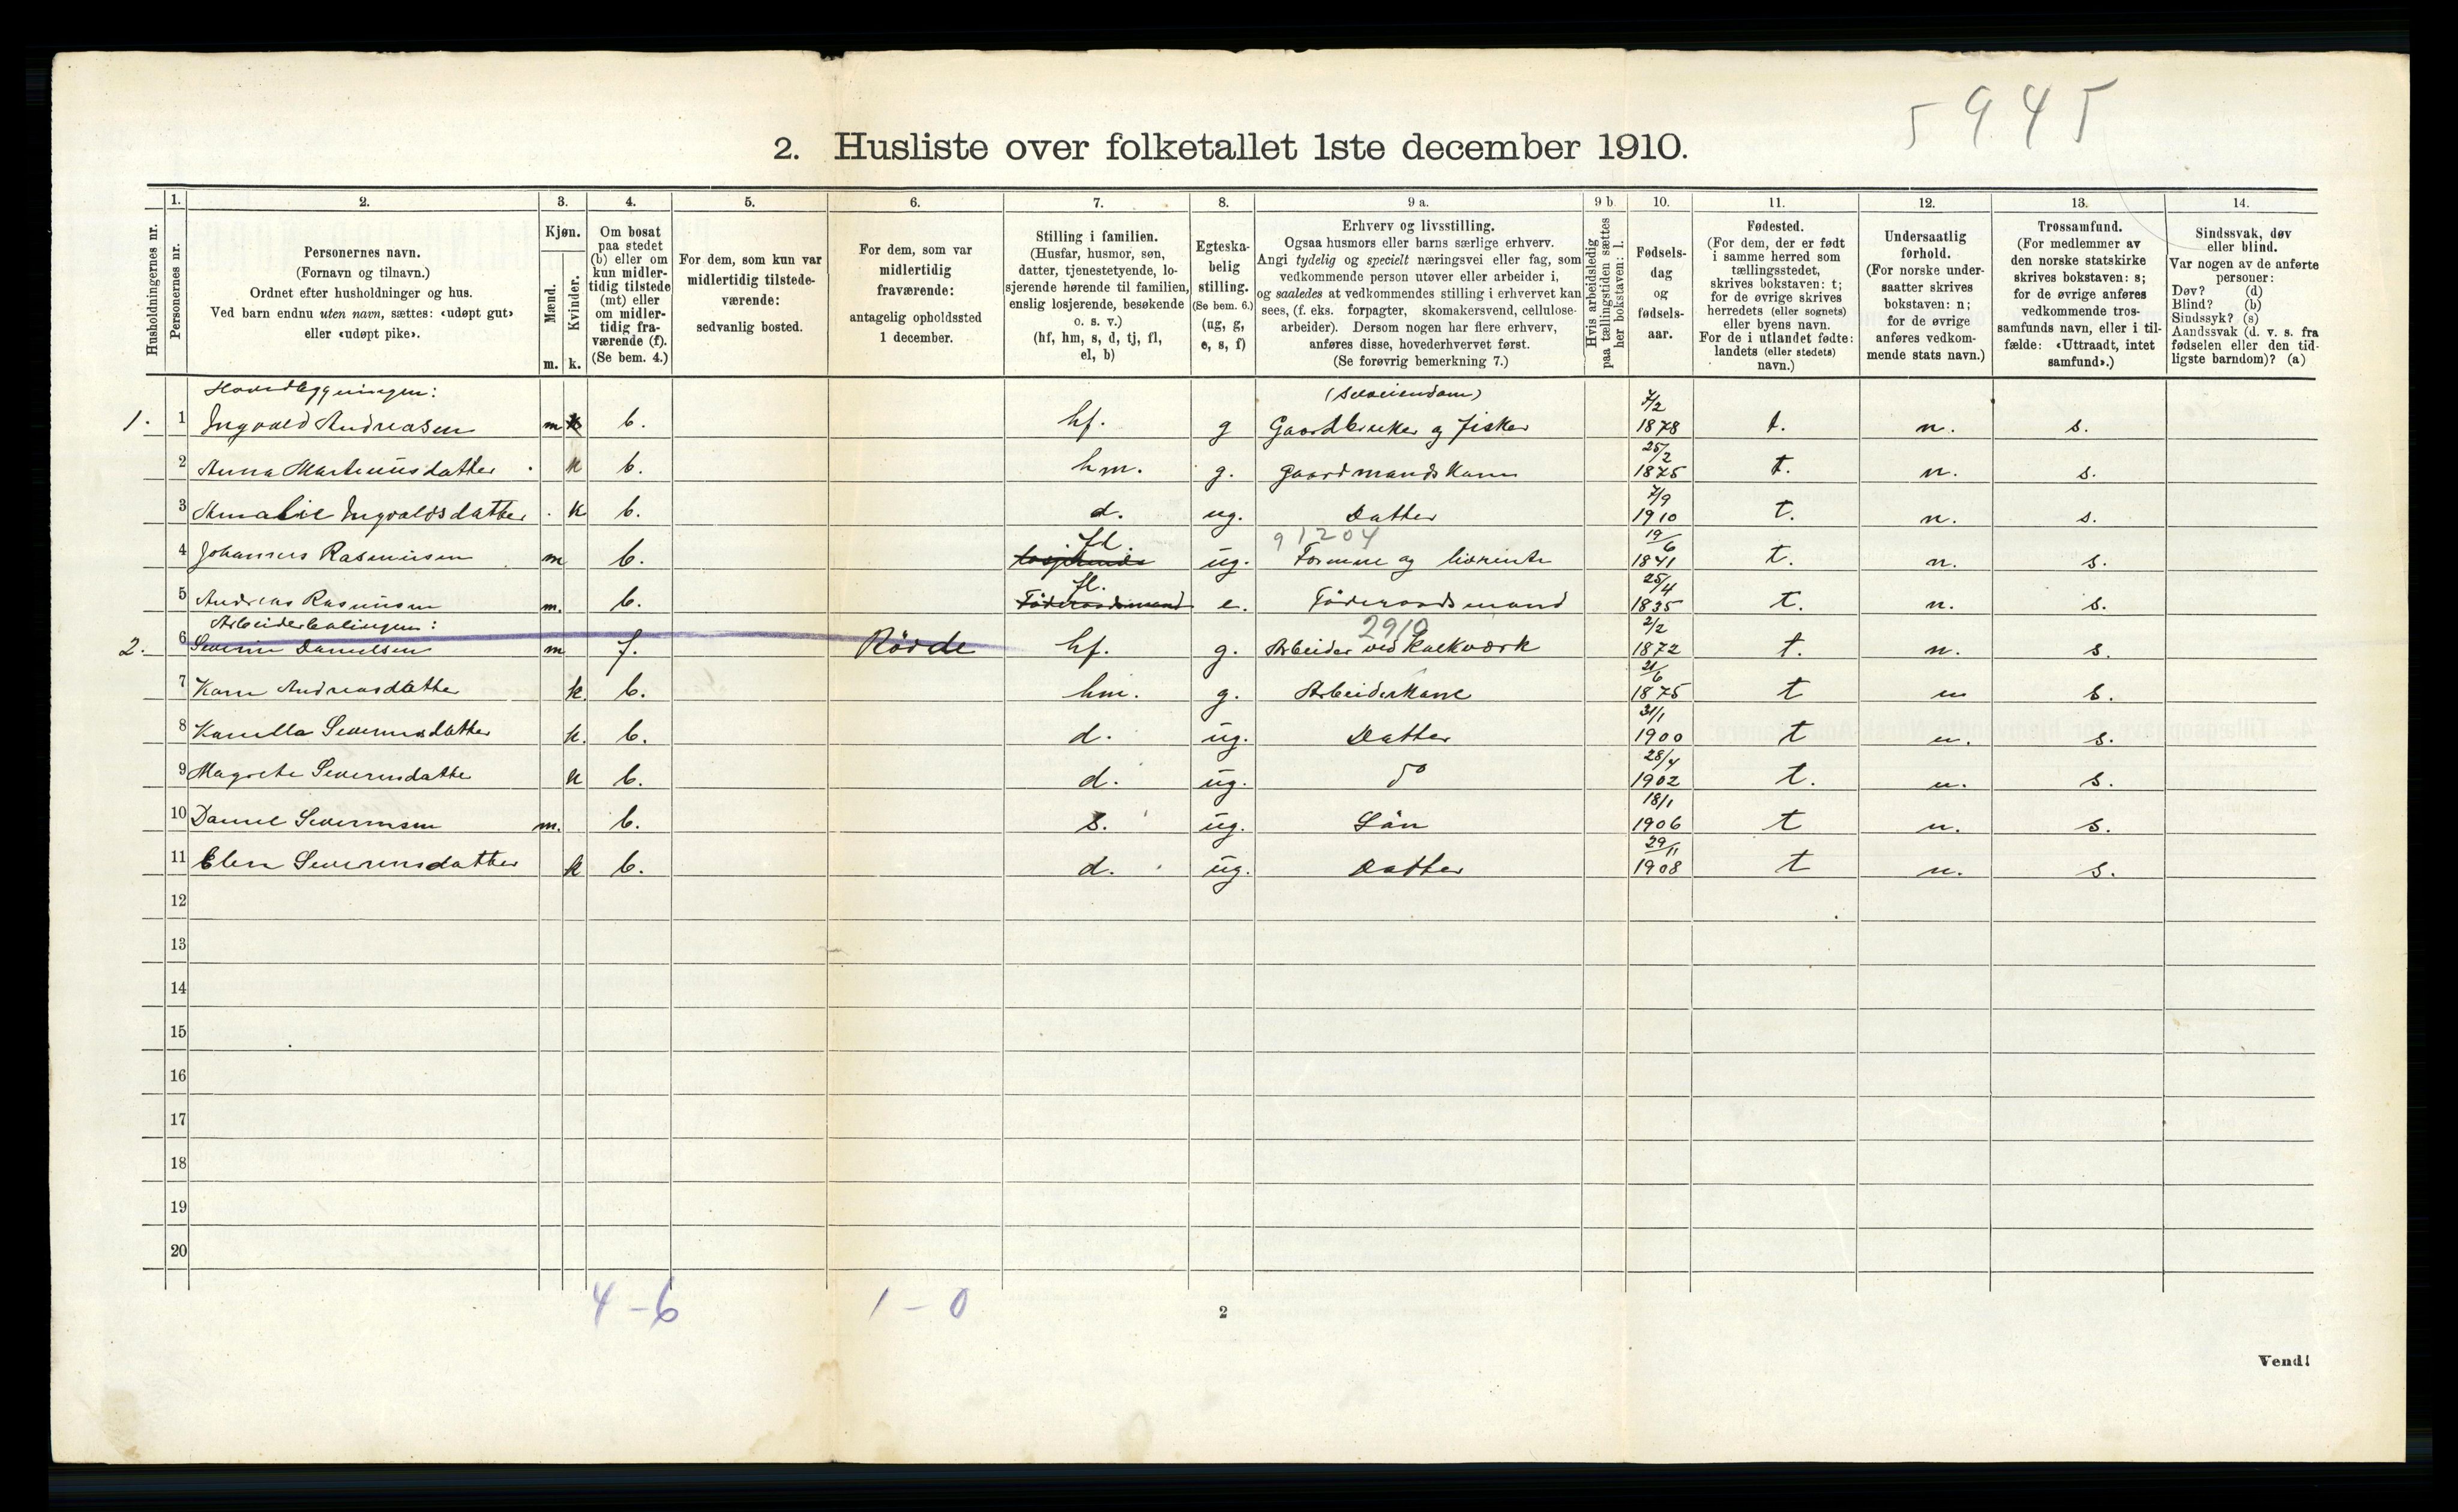 5945
2. Husliste over folketallet 1ste december 1910.
Husholdningernes nr.
1.
Personernes nr.
2.
Personernes navn.
(Fornavn og tilnavn.)
Ordnet efter husholdninger og hus.
Ved barn endnu uten navn, sættes: «udøpt gut»
eller «udøpt pike».
3.
Kjøn.
Mænd.
Kvinder.
m. k.
4.
Om bosat
paa stedet
(b) eller om
kun midler-
tidig tilstede
(mt) eller
om midler-
tidig fra-
værende (f).
(Se bem. 4.)
5.
For dem, som kun var
midlertidig tilstede-
værende:
sedvanlig bosted.
6.
For dem, som var
midlertidig
fraværende:
antagelig opholdssted
1 december.
7.
Stilling i familien.
(Husfar, husmor, søn,
datter, tjenestetyende, lo-
sjerende hørende til familien,
enslig losjerende, besøkende
o. s. v.)
(hf, hm, s, d, tj, fl,
el, b)
8.
Egteska-
belig
stilling.
(Se bem. 6.)
(ug, g,
e, s, f)
9 a.
Erhverv og livsstilling.
Ogsaa husmors eller barns særlige erhverv.
Angi tydelig og specielt næringsvei eller fag, som
vedkommende person utøver eller arbeider i,
og saaledes at vedkommendes stilling i erhvervet kan
sees, (f. eks. forpagter, skomakersvend, cellulose-
arbeider). Dersom nogen har flere erhverv,
anføres disse, hovederhvervet først.
(Se forøvrig bemerkning 7.)
9 b.
Hvis arbeidsledig
paa tællingstiden sættes
her bokstaven: l.
10.
Fødsels-
dag
og
fødsels-
aar.
11.
Fødested.
(For dem, der er født
i samme herred som
tællingsstedet,
skrives bokstaven: t;
for de øvrige skrives
herredets (eller sognets)
eller byens navn.
For de i utlandet fødte:
landets (eller stedets)
navn.)
12.
Undersaatlig
forhold.
(For norske under-
saatter skrives
bokstaven: n;
for de øvrige
anføres vedkom-
mende stats navn.)
13.
Trossamfund.
(For medlemmer av
den norske statskirke
skrives bokstaven: s;
for de øvrige anføres
vedkommende tros-
samfunds navn, eller i til-
fælde: «Uttraadt, intet
samfund».)
14.
Sindssvak, døv
eller blind.
Var nogen av de anførte
personer:
Døv? (d)
Blind? (b)
Sindssyk? (s)
Aandssvak (d. v. s. fra
fødselen eller den tid-
ligste barndom)? (a)
Hovedbygningen:
1. 1 Ingvald Andreasen m k b. hf. g (Selveiendom) Gaardbruker og fisker 7/2 1878 t. n. s.
2 Anna Martinusdatter k b. hm. g. Gaardmandskone 25/2 1875 t. n. s.
3 Amalie Ingvaldsdatter k b. d. ug. Datter 7/9 1910 t. n. s.
4 Johannes Rasmussen m b. fl. losjerende ug. 91204 Formue og livrente 19/6 1841 t. n. s.
5 Andreas Rasmusen m. b. fl. Föderaadsmand e. Föderaadsmand 25/4 1835 t. n. s.
Arbeiderbolingen:
2. 6 Severin Danielsen m f. Rövde hf. g. 2910 Arbeider ved Kalkværk 2/2 1872 t. n. s.
7 Karn Andreasdatter k. b. hm. g. Arbeiderkone 21/6 1875 t n s.
8 Kamilla Severinsdatter k. b. d. ug. Datter 31/1 1900 t n. s.
9 Magrete Severinsdatter k b. d. ug. do 28/4 1902 t. n. s.
10 Daniel Severinsen m. b. s. ug. Sön 18/1 1906 t n. s.
11 Elen Severinsdatter k b. d. ug. Datter 29/11 1908 t n. s.
12
13
14
15
16
17
18
19
20
4-6 1-0
2
Vend!